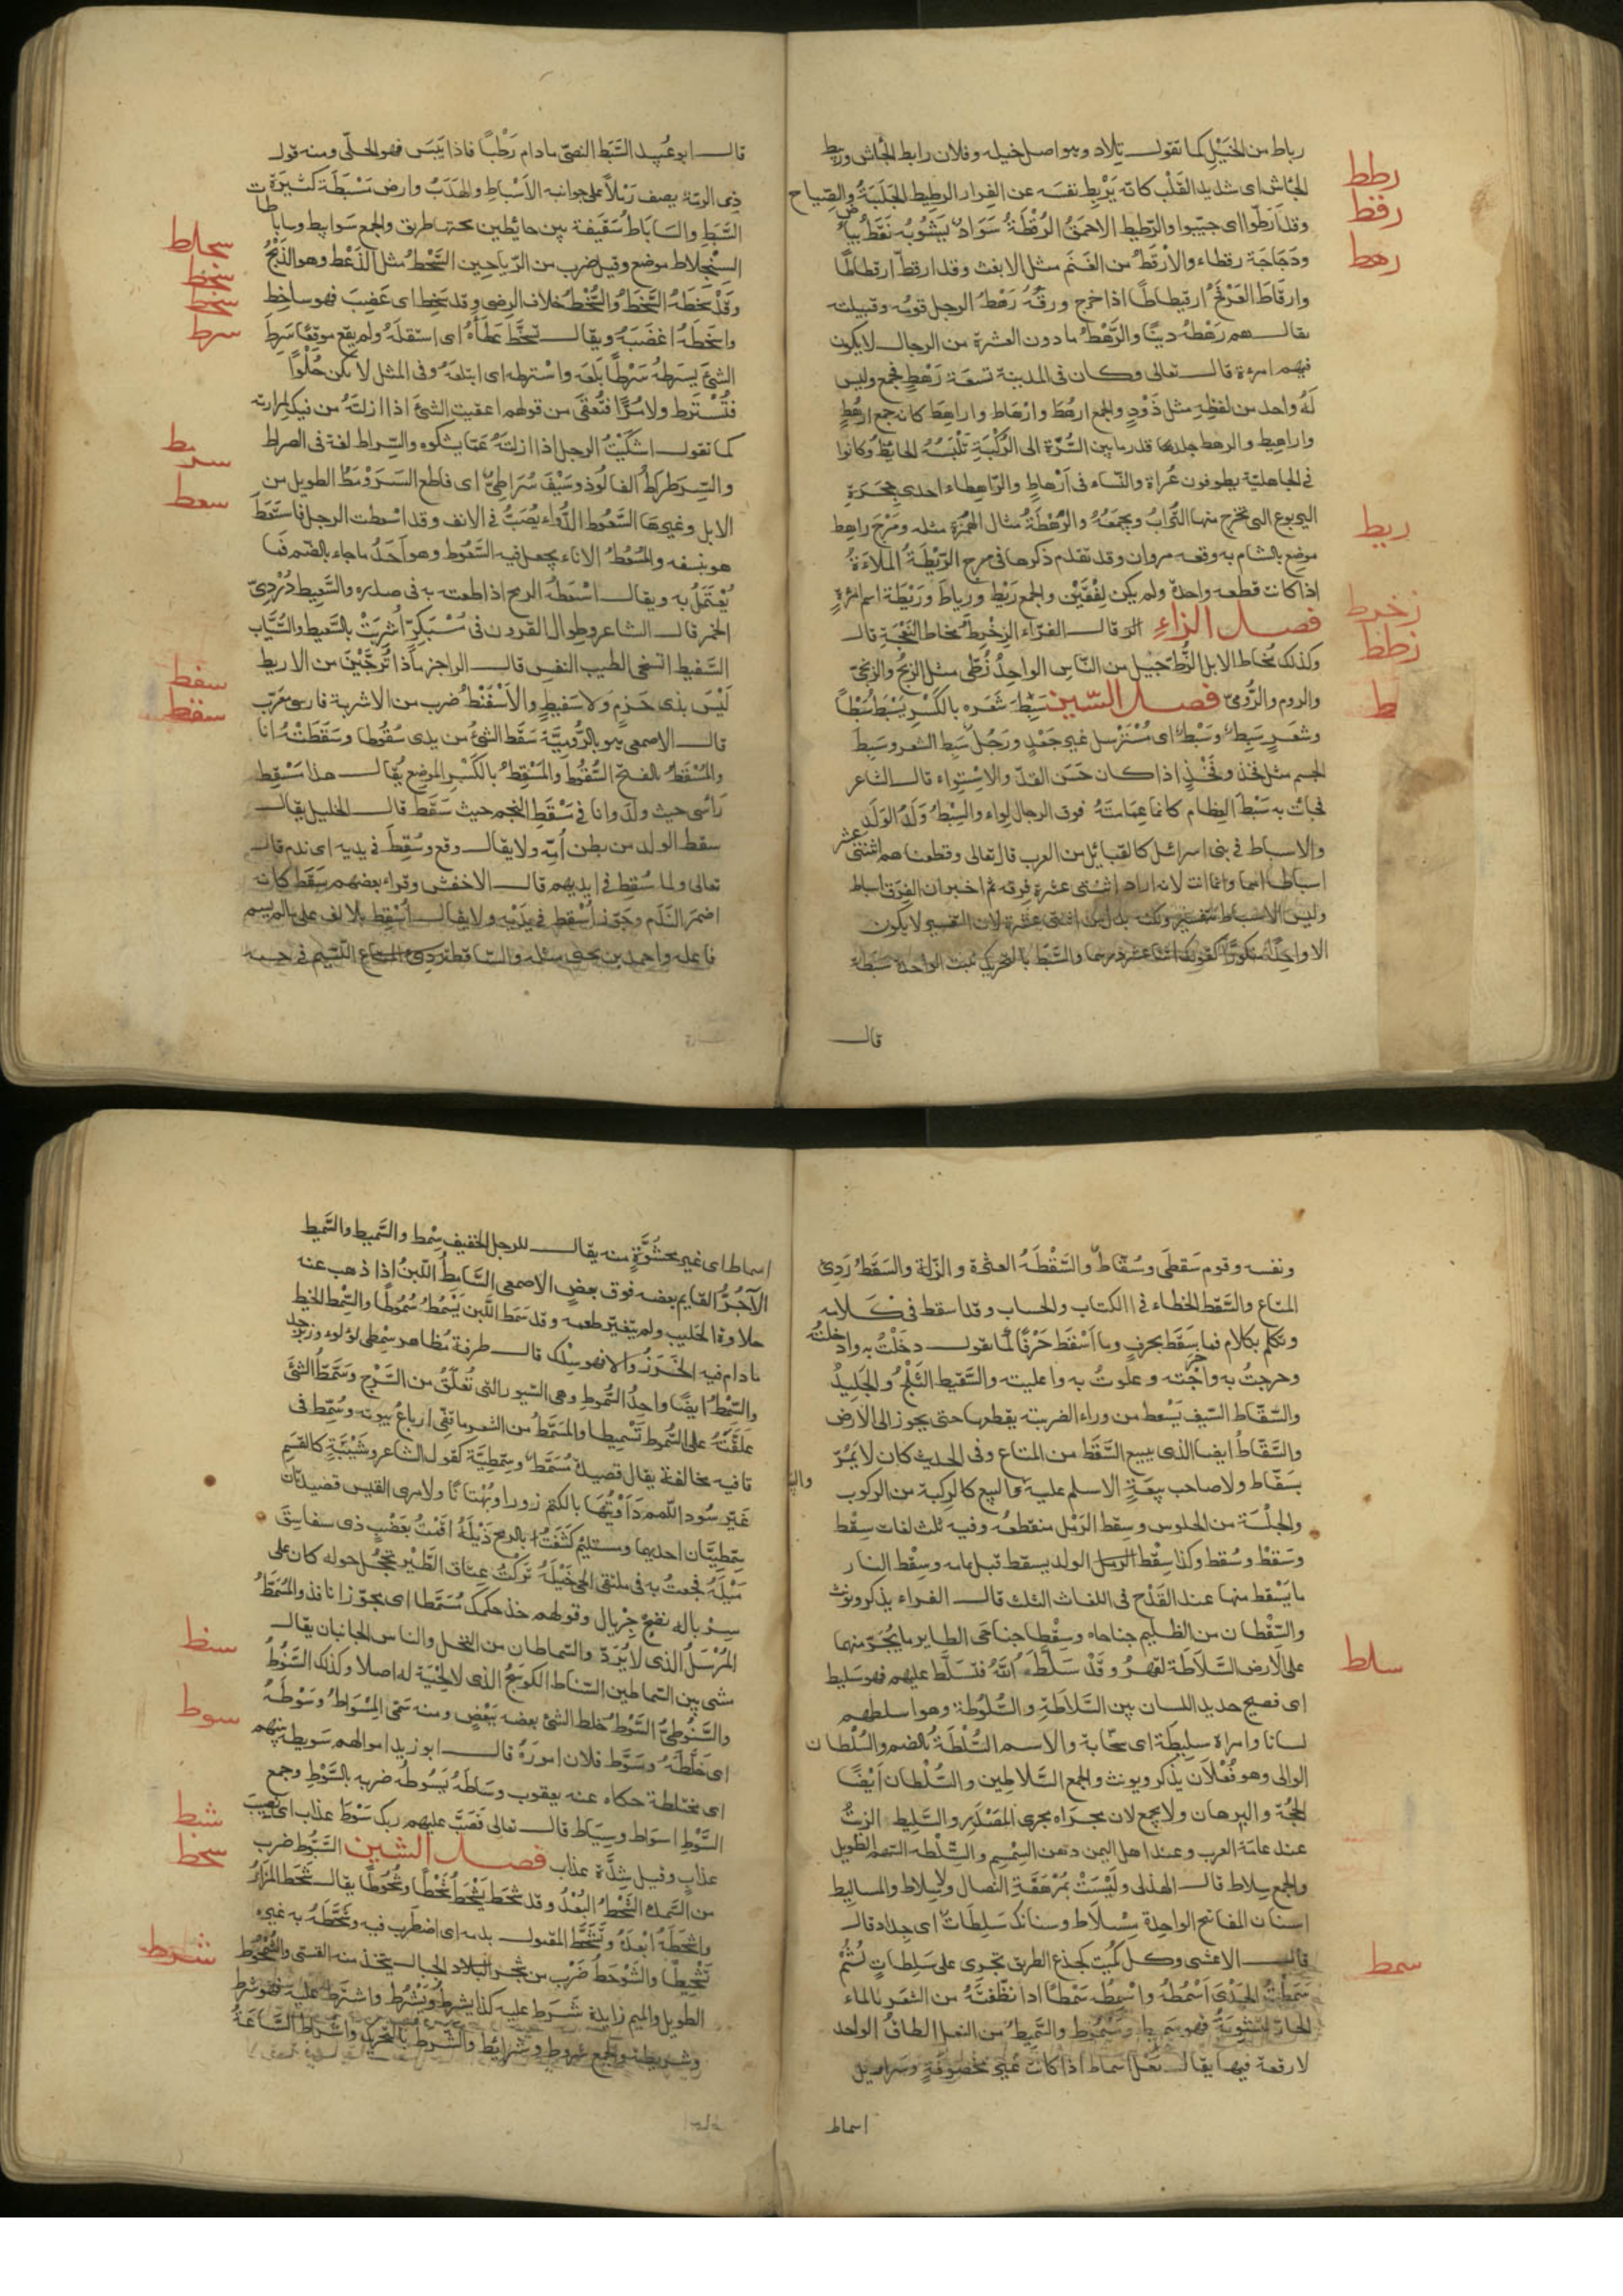 رباط من الخَيْلِ كما تقول تِلاد وهو اصل خيله وفلان رابط الجأش وربيط
الجأش اى شديد القَلْب كانه يَرْبِط نفسه عن الفرار الرطيط الجَلَبَةُ والصياح
وقد اَرَطّوا اى جلبوا والرّطيط الاحمقُ الرُقْطَةُ سَوَادٌ يَشُوبُهُ نُقَطُ بياض
ودَجَاجَة رقطاء والارْقَطُ من الغَنَم مثل الابغث وقد ارقطّ ارقطاطًا
وارقاطّ العَرْفَجُ ارقيطاطًا اذا خرج ورقُه رَهْطُ الرجل قومُه وقبيلته
يقال هم رَهْطُه دِنيًا والرَّهْطُ ما دون العشرة من الرجال لا يكون
فيهم امرءة قال تعالى وكان فى المدينة تسعَة رَهْطٍ فجمع وليس
لَهُ واحد من لفظِهِ مثل ذَوْدٍ والجمع ارهُط وارْهاط واراهِط كانه جمع ارهُطٍ
واراهيط والرهط جلدها قدر ما بين السُّرّة الى الرُّكْبَةِ تَلْبَسُهُ الحائِضُ وكانوا
فى الجاهلية يطوفون عُراة والنّساء فى اَرْهاطٍ والرّاهِطاء احدى جِحَرَةِ
اليربوع التى تخرج منها التُّرابُ ويجمعُهُ والرُّهَطَةُ مثال الهُمَزة مثله ومَرْجَ راهِط
موضع بالشام به وقعه مروان وقد تقدم ذكرها فى مرج الرّيْطَةُ المُلاءَةُ
اذا كانت قطعه واحدة ولم يكن لِفْقَيْن والجمع رَيْط ورِياط ورَيْطَة اسم امْرءةٍ
فصل الزاء قال الفرّاء الزِخْرِط مخاط النَّعْجَةِ قال
وكذلك مُخاط الابل الزُّطّ جيل من النّاس الواحِدُ زُطّى مثل الزنجُ والزنجىّ
والروم والرُّومىّ فصل السّين سَبِطَ شَعَره بالكَسْر يَسْبَطُ سَبَطًا
وشَعَر سَبِطٌ وسَبْطٌ اى مُسْتَرْسِل غير جَعْدٍ ورَجُل سَبِط الشعر وسَبِطُ
الجسم مثل فَخِذ وفَخْذٍ اذا كان حَسَن القدّ والاِسْتِواء قال الشاعر
فجاءت به سَبْطَ العِظام كانما عِمَامَتهُ فوق الرجال لِواء والسِبْطُ وَلَدُ الوَلَدِ
والاسباط فى بنى اسرائيل كالقبائل من العرب قال تعالى وقطعناهم اثنتى عشر
اسباطا امما وانما انث لانه اراد اثنتى عشرة فرقه ثم اخبر ان الفِرَق اسباط
وليس الاسباط بتفسير ولكنه بدل من اثنتى عشرة لان التفسير لا يكون
الا واحدًا منكورًا كقولك اثنا عشر درهما والسَّبَطُ بالتحريك نبت الواحدة سَبَطة
قال
رطط
رقط
رهط
ريط
زخرط
زطط
ط
قال ابو عبيد السَّبَط النصىّ ما دام رَطْبًا فاذا يَبِسَ فهو الحلّى ومنه قول
ذى الرمّة يصف رَمْلاً على جوانبه الاَسْباط والهَدَبُ وارض مَسْبَطَة كثيرَة
السَّبَطِ والسَاباط سَقيفة بين حائِطين تحتها طريق والجمع سَوابيط وساباطات
السِنْجِلاط موضع وقيل ضرب من الرّياحِين السَّحْطُ مثل الذَعْط وهو الذَبْحُ
وقَدْ سَحَطَهُ السَّخَطُ والسُّخْطُ خلاف الرِضى وقد سَخِط اى غَضِبَ فهو ساخِط
واسْخَطَهُ اغضَبَهُ ويقال تسَخَّط عَطَاءهُ اى استقلَهُ ولم يقع موقِعًا سَرِطَ
الشئَ يَسْرَطهُ سَرْطًا بَلَعَهُ واسْترطه اى ابتلعَهُ وفى المثل لا تكن حُلْوًا
فتُسْتَرط ولا مُرًّا فتُعْقَى من قولهم اعقيت الشئَ اذا ازلتَهُ من فيك لمرارته
كما تقول اشكَيْتُ الرجل اذا ازلتَهُ عمّا يشكوه والسِّراط لغة فى الصراط
والسِّرَطراط الفالُوذ وسَيْف سُرَاطِىٌّ اى قاطع السَرَوْمَطُ الطويل من
الابل وغيرها السَّعُوط الدَّواء يُصَبُّ فى الانف وقد اسعطت الرجل فاستَعَطَ
هو بنفسه والمُسْعُطُ الاناء يجعل فيه السَّعُوط وهو اَحَدُ ما جاء بالضّم مّما
يُعْتَمَلُ به ويقال اسْعَطْتُهُ الرمح اذا طعنته به فى صدره والسَّعِيط دُرْدِىّ
الخمر قال الشاعر وطِوال القرون فى مُسْبَكِرٍّ اُشْرِبَتْ بالسَّعيط والسَّيّاب
السَّفيط السّخىّ الطيب النفس قال الراجز ماذا تُرجَّيْنَ من الاريط
لَيْسَ بذى حَزمٍ وَلا سَفيطٍ والاَسْفَنْط ضرب من الاشربة فارسىّ معرّب
قال الاصمعى هو بالرُّوميّة سَقَط الشئُ من يدى سُقُوطا وسَقَطتُهُ انا
والمَسْقَطُ بالفتح السُّقُوط والمَسْقِطُ بالكَسْر الموضع يُقال هذا مَسْقِط
رَأسى حيث ولد وانا فى سَقْطِ النجم حيث سَقَطَ قال الخليل يقال
سقط الولد من بطن اُمّه ولا يقال وقع وسُقِطَ فى يديه اى ندم قال
تعالى ولما سُقِطَ فى ايديهم قال الاخفش وقراء بعضهم سَقَط كانه
اضمر النّدَم وجَوّز اُسْقِط فى يَدَيْه ولا يقال اُسْقِط بالالف على ما لم يسم
فاعله واحمد بن يحيى مثله والسّاقطة اللّئيم فى حسبه
سجلط
سحط
سخط
سرط
سرمط
سعط
سفط
سقط
ونفسه وقوم سَقطَى وسُقّاطٌ والسَّقْطَةُ العثْرة والزّلة والسَقَطُ رَدِئ
المتاع والسَّقَط الخطاء فى الكتاب والحساب وقد اسقط فى كَلامه
وتكلم بكلام فما سَقَطَ بحرفٍ وما اَسْقَط حَرْفًا كما تقول دخَلْتُ به وادخلتُه
وخرجتُ به واخرجْته وعلوتُ به واعليته والسَّقيط الثَلْجُ والجَلِيدُ
والسَّقّاط السّيف يَسْقط من وراء الضريبه يقطعها حتى يجوز الى الارض
والسَّقّاطُ ايضا الذى يبيع السَّقَط من المتاع وفى الحديث كان لا يَمُرّ
بسَقّاط ولا صاحب بِيعَةٍ الا سلم عليه والبيع كالرِكبة من الركوب
والجلْسَة من الجلوس وسقط الرَمْل منقطعُه وفيه ثلث لغات سِقْط
وسَقْط وسُقط وكذا سِقْط الولد يسقط قبل تمامه وسِقْط النار
ما يَسْقط منها عند القَدْح فى اللغات الثلث قال الفراء يذكر ويونث
والسِّقْطان من الظليم جناحاه وسِقْطا جناحَى الطاير ما يُجَرّ منهما
على الارض السَّلاَطَة القهر وقَدْ سَلَّطَهُ اللّهُ فتَسَلَّط عليهم فهو سَليط
اى فصيح حديد اللسان بين السَّلاَطَةِ والسُّلُوطة وهو اسلطهم
لسانا وامراة سلِيطَة اى سخّابة والاسم السُّلْطَةُ بالضم والسُلْطان
الوالى وهو فُعْلاَن يذكر ويونث والجمع السَّلاطِين والسُّلْطان اَيْضًا
الحجُّة والبرهان ولا يجمع لان مجراه مجرى المَصْدَر والسَّلِيط الزيتُ
عند عامّة العرب وعند اهل اليمن دهن السِّمسِم والسِّلْطه السّهم الطويل
والجمع سِلاط قال الهذلى ولَيْسَتْ بمُرْهَفَةِ النِّصال ولا سِلاط والمساليط
اسنان المفاتيح الواحِدة مِسْلاط وسنابك سَلِطات اى حِداد قال
قال الاعشى وكل كُمَيْت كجذع الطريق تجرى على سَلِطاتٍ لُثُمْ
سَمَطْتُ الجَدْىَ اَسْمُطُهُ واسْمِطُه سَمْطًا اذا نظّفتَهُ من الشعَر بالماء
الحارّ لتشْوِيَهُ فهو سَمِيط ومَسْمُوط والسَّمِيطُ من النعل الطاقُ الواحد
لا رقعة فيها يقال نَعْل اَسماط اذا كانت غير مخصوفةٍ وسَراويل
اسماط
سلط
سمط
اسماط اى غير محشُوَّةٍ منه يقال للرجل الخفيف سِمْط والسَّميط والسُّميط
الآجُرُّ القايم بعضه فوق بعض الاصمعى السّامِطُ اللّبنُ اذا ذهب عنه
حلاوة الحَليب ولم يتغيّر طعمه وقد سَمَط اللّبن يَسْمُطُ سُمُوطًا والسِّمْط الخيط
ما دام فيه الخَرَزُ والا فهو سِلْك قال طرفة مُظاهر سِمْطَى لؤلؤ وزبرجد
والسِّمْطُ ايضًا واحِدُ السُّموطِ وهى السّيور التى تُعَلَّقُ من السَّرْج وسَمَّطْتُ الشئَ
عَلَقَّتُهُ على السُّمُوط تَسْميطا والمُسَمَّطُ من الشعر ما قُفّى ارباعُ بيوته وسُمِّط فى
قافيه مخالفة يقال قصيدة مُسَمَّطةٌ وسِمْطِيَّة كقول الشاعر وشَيْبَةٍ كالقَسِمِ
غَيّر سُود اللّمم دَاوَيْتُها بالكتم زورا وبُهْتانًا ولامرئ القيس قصيدتان
سِمْطِيَّتان احديهما ومستلئِم كَشَّفْتُ بالرمح ذَيْلَهُ اقَمْتُ بعَضْبٍ ذى سفاسِقَ
مَيْلَهُ فجعتُ به فى ملتقى الحىّ خَيْلَهُ تركْتُ عِتاق الطّيْر تحجُل حوله كان على
سِرْباله نضح جِرْيال وقولهم خذ حكمك مُسَمَّطا اى مجوّزا نافذ والمُسَمَّطُ
المُرْسَلُ الذى لا يُرَدّ والسّماطان من النخل والناس الجانبان يقال
مشى بين السّماطين السّناط الكوسَجُ الذى لا لِحْيَة له اصلا وكذلك السَّنُوطُ
والسَّنُوطِىُّ السَّوْطُ خلط الشئ بعضه ببَعْضٍ ومنه سمّى المِسْوَاطُ وسَوَّطَهُ
اى خَلَّطَهُ وسَوَّط فلان امورَهُ قال ابو زيد اموالهم سَويطة بينهم
اى مختلطة حكاه عنه يعقوب وسَاطَهُ يَسُوطُه ضربه بالسَّوْطِ وجمع
السَّوْطِ اسواط وسِيَاط قال تعالى فَصَبَّ عليهم ربك سَوْط عذاب اى نصيبَ
عذابٍ وقيل شِدّة عذاب فصل الشين الشَّبُّوط ضرب
من السَّمك الشَّحْطُ البُعْدُ وقد شحَط يَشْحَطُ شَحْطًا وشُحُوطًا يقال شَحَط المَزَارُ
واشحَطهُ ابعدَهُ وتَشَحَّط المقتول بدمه اى اضطرب فيه وشحَّطهُ به غيره
تَشْحِيطًا والشَّوْحَطُ ضَرْب من شجر الجبال يتخذ منه القسى والشُّمْحُوط
الطويل والميم زايدة شَرَط عليه كذا يشرِطُ ويَشْرُط واشترط عليه
وشريطة والجمع شروط وشرايط والشَّرَط بالتحريك واشراط السَّاعَةُ
سنط
سوط
شبط
شحط
شرط